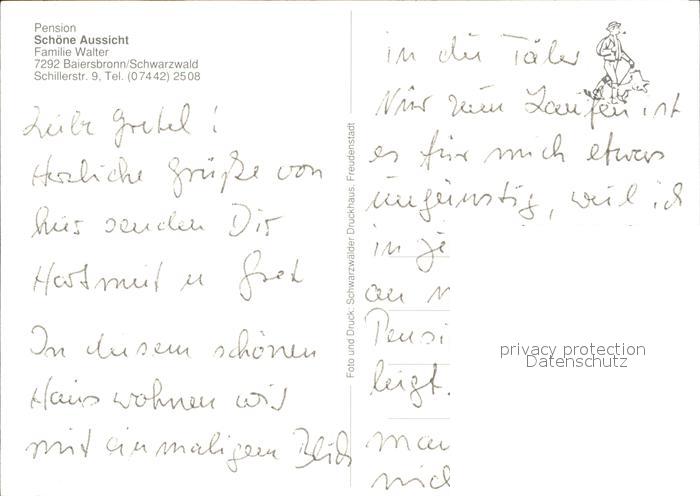 Pension
Schöne Aussicht
Familie Walter
7292 Baiersbronn/Schwarzwald
Schillerstr. 9, Tel. (07442) 2508
Liebe Gretel!
Herzliche Grüße von
hier senden Dir
Hartmut u Gret
In diesem schönen
Haus wohnen wir
mit einmaligem Blick
Foto und Druck: Schwarzwälder Druckhaus, Freudenstadt
in die Täler
Nur zum Laufen ist
es für mich etwas
ungünstig, weil ich
in je
an
Pensi
liegt.
man
mich
privacy protection
Datenschutz